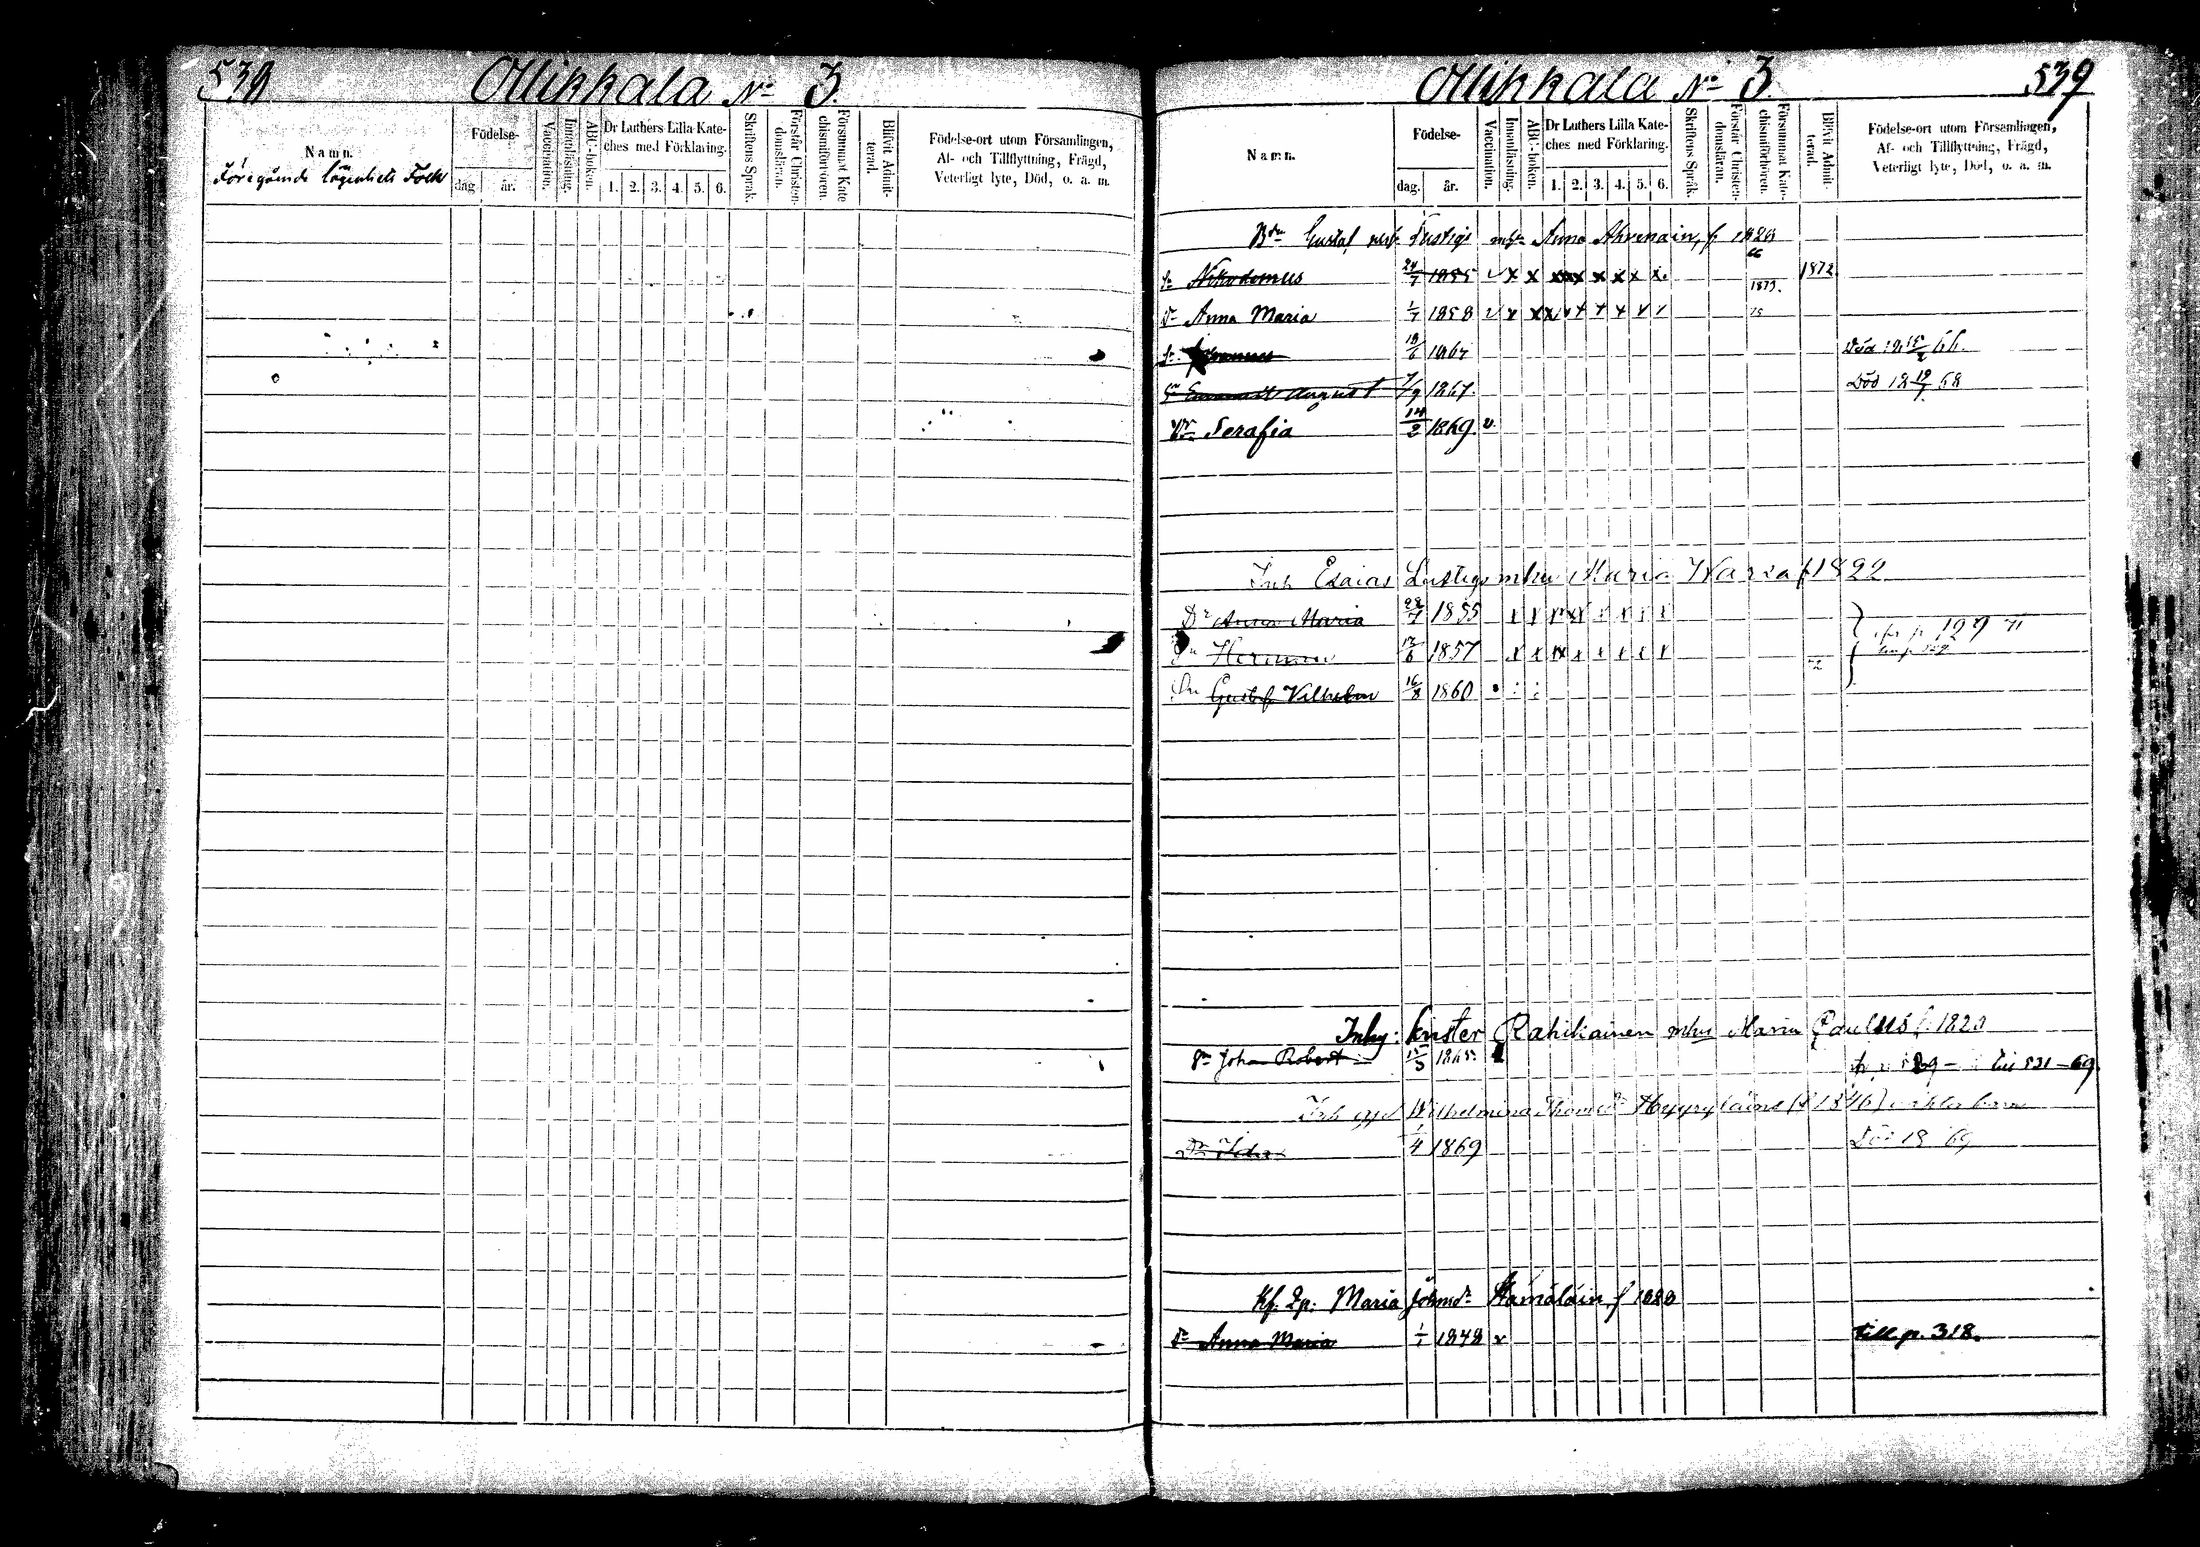 538
Ollikkala No 3.
Namn.
Föregående lägenhets Folk
Födelse-
dag
år.
Vaccination.
Innanläsning.
ABC-boken.
Dr Luthers Lilla Kate-
ches med Förklaring.
1. 2. 3. 4. 5. 6.
Skriftens Språk.
Förstår Christen-
domsläran.
Försummat Kate
chismiförhören.
Blifvit Admit-
terad.
Födelse-ort utom Församlingen,
Af- och Tillflyttning, Frägd,
Veterligt lyte, Död, o. a. m.
Ollikkala No 3
539
Namn.
Födelse-
dag.
år.
Vaccination.
Innanläsning.
ABC-boken.
Dr Luthers Lilla Kate-
ches med Förklaring.
1. 2. 3. 4. 5. 6.
Skriftens Språk.
Förstår Christen-
domsläran.
Försummat Kate-
chismiförhören.
Blifvit Admit-
terad.
Födelse-ort utom Församlingen,
Af- och Tillflyttning, Frägd,
Veterligt lyte, Död, o. a. m.
Gustaf Lustigs Anna Ahvenain, f.
Sn Nikodemus 24/7 1855 v x x x x x x x x x 1872
1873.
Dr Anna Maria 1/7 1858 v x x x x x x x x x 75
Sn 18/6
Död 66.
Sn August 7/9 1867. Död 18 19/7 68
Dr Serafia 14/2 1869. v.
Inh Esaias Lustigs mhu Maria f 1822
Dr Anna Maria 28/7 1855 x x x x x x x x
Sn Herman 17/6 1857 x x x x x x x x 129
Sn Gustaf Vilhelm 16/8 1860
Inhy: Krister Rahikainen mhu Maria Paulus f. 1823
Sn Johan Robert 15/3 1865. 531-69.
Inh Wilhelmina Thomasdr Hyyryläine (f 1846) oäkta barn
Dr Ida 1/4 1869 Död 18 69
Kf. Ep. Maria Johansdr Hämäläin, f
Dr Anna Maria 1/1 1848 x till p. 318.